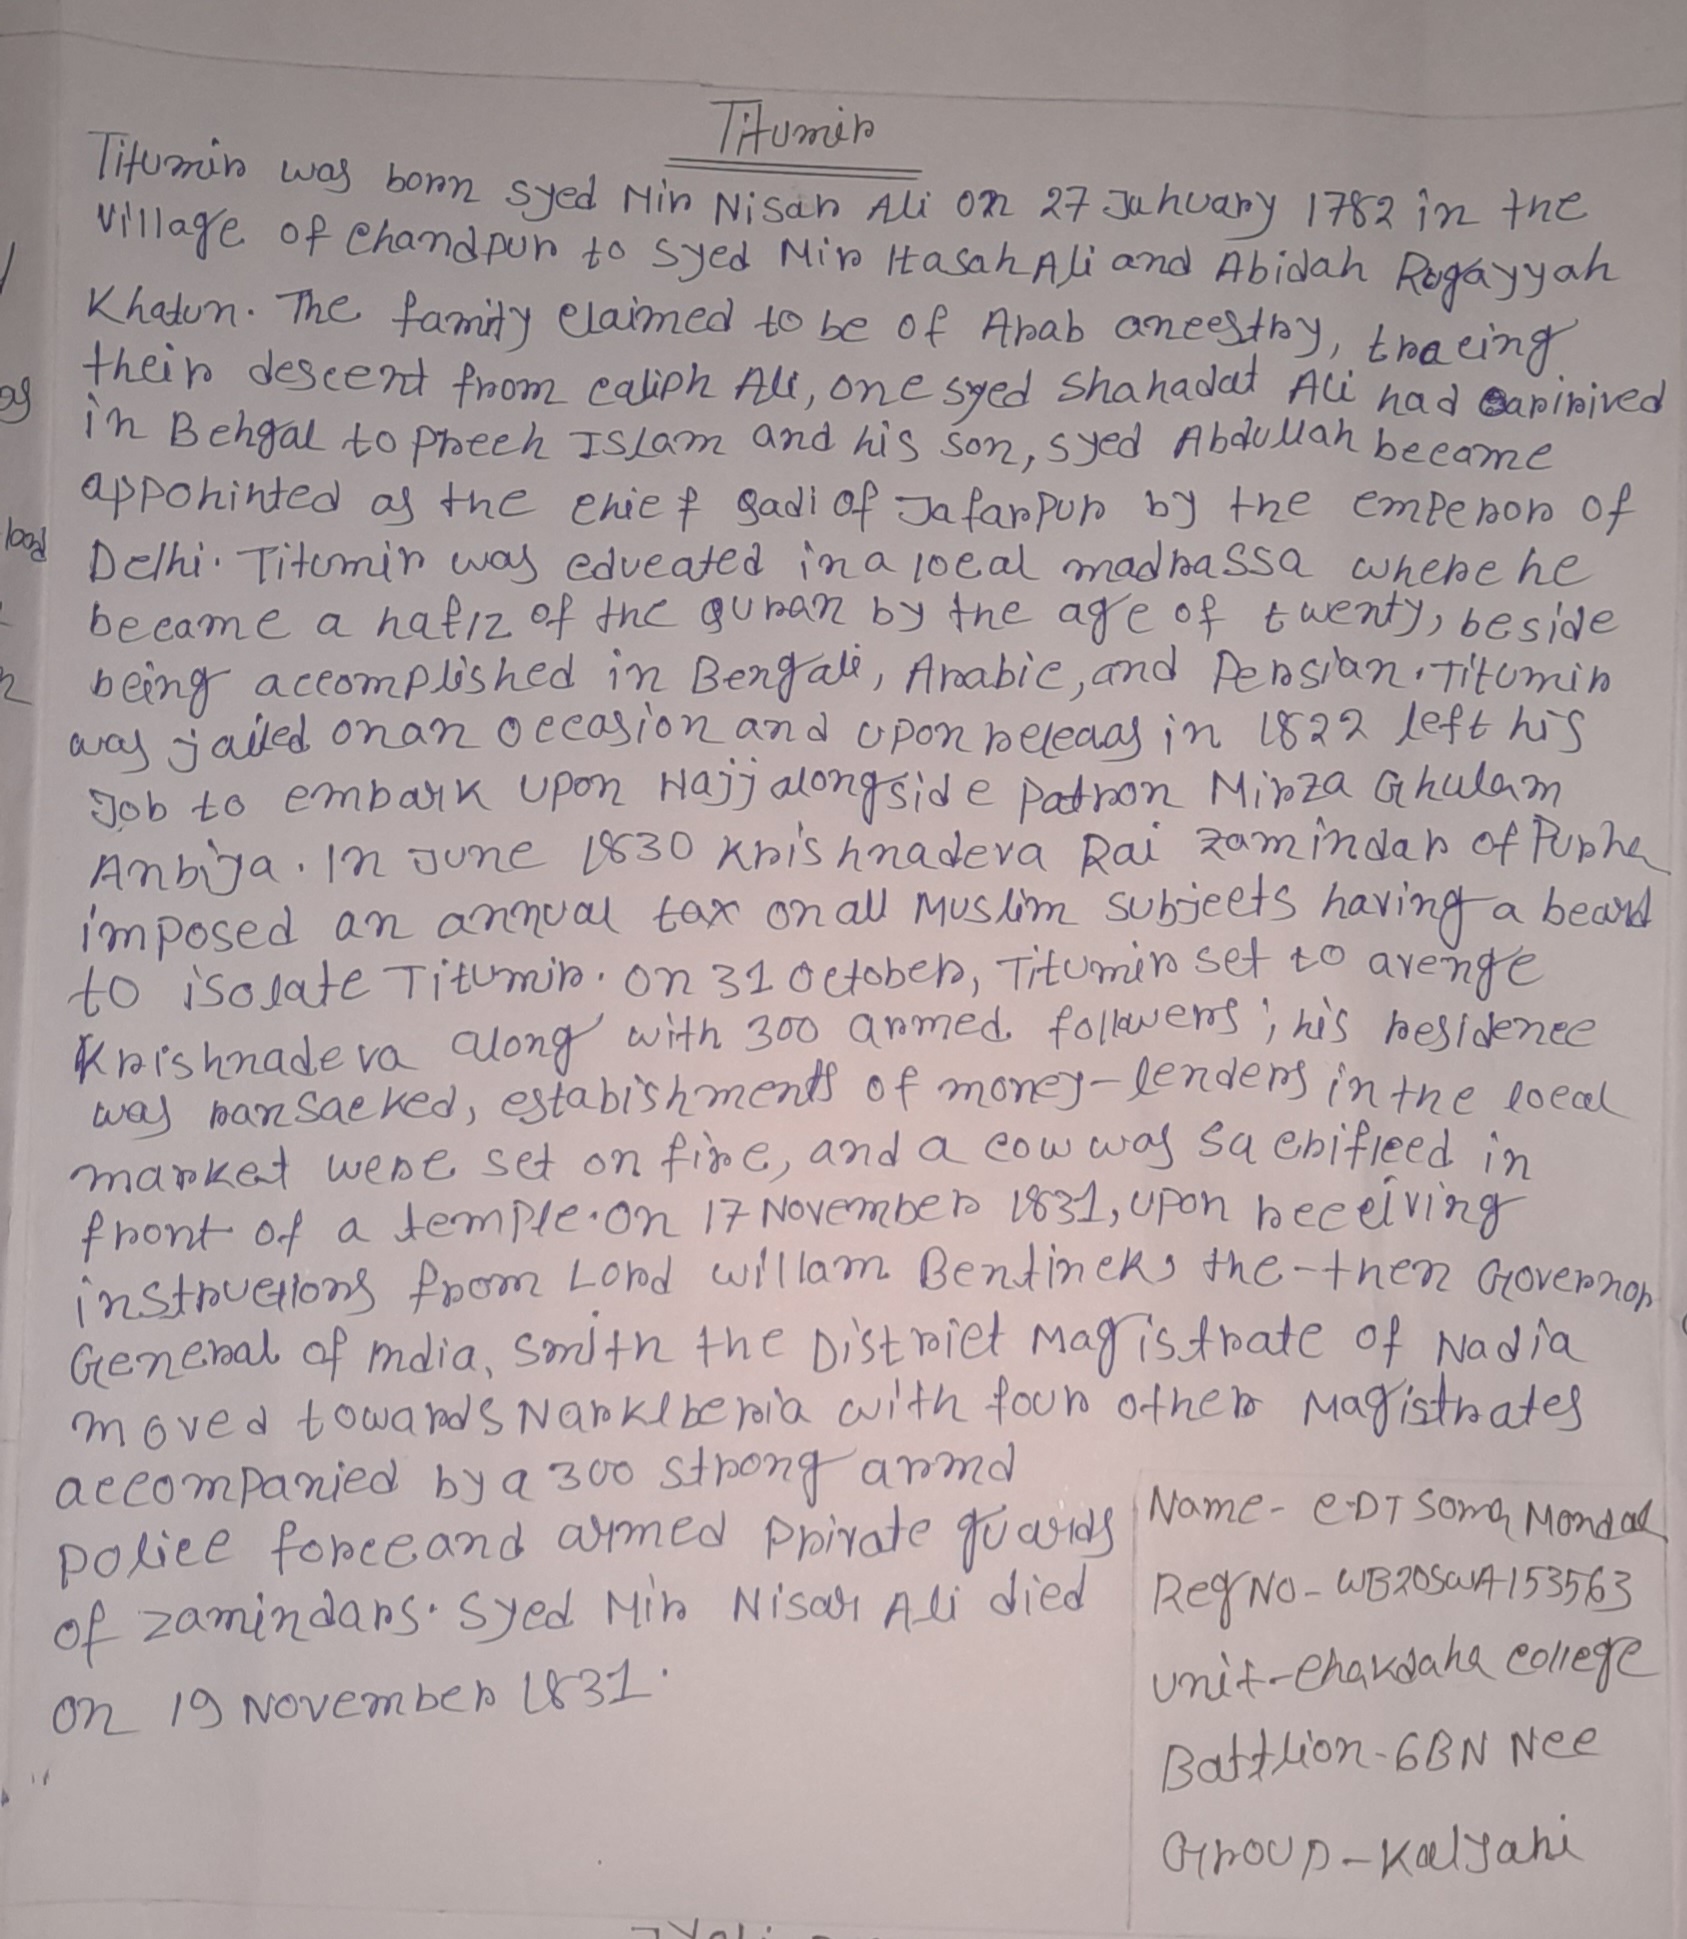 Titumir
Titumir was born Syed Mir Nisar Ali on 27 Jahuary 1782 in the
village of Chandpur to Syed Mir Hasah Ali and Abidah Rogayyah
Khatun. The family claimed to be of Arab ancestry, tracing
their descent from caliph Ali, one syed Shahadat Ali had arrived
in Behgal to preech Islam and his son, syed Abdullah became
appohinted as the chief gadi of Jafarpur by the emperor of
Delhi. Titumir was educated in a local madrassa where he
became a hafiz of the Quran by the age of twenty, beside
being accomplished in Bengali, Arabic, and Persian. Titumir
was jailed on an occasion and upon releaas in 1822 left his
Job to embark upon Hajj alongside patron Mirza Ghulam
Anbiya. In June 1830 Krishnadeva Rai zamindar of Purha
imposed an annual tax on all Muslim subjects having a beard
to isolate Titumir. On 31 October, Titumir set to avenge
Krishnadeva along with 300 armed followers; his residence
was ransacked, estabishments of money-lenders in the local
market were set on fire, and a cow was sacrificed in
front of a temple. On 17 November 1831, upon receiving
instructions from Lord willam Bentinck, the-then Governor
General of India, Smith the District Magistrate of Nadia
moved towards Narklberia with four other Magistrates
accompanied by a 300 strong armd
police force and armed private guards
of zamindars. Syed Mir Nisar Ali died
on 19 November 1831.
Name - CDT Soma Mondal
Reg No - WB20SWA153563
Unit - Chakdaha College
Battlion - 6BN Ncc
Group - Kalyahi
as